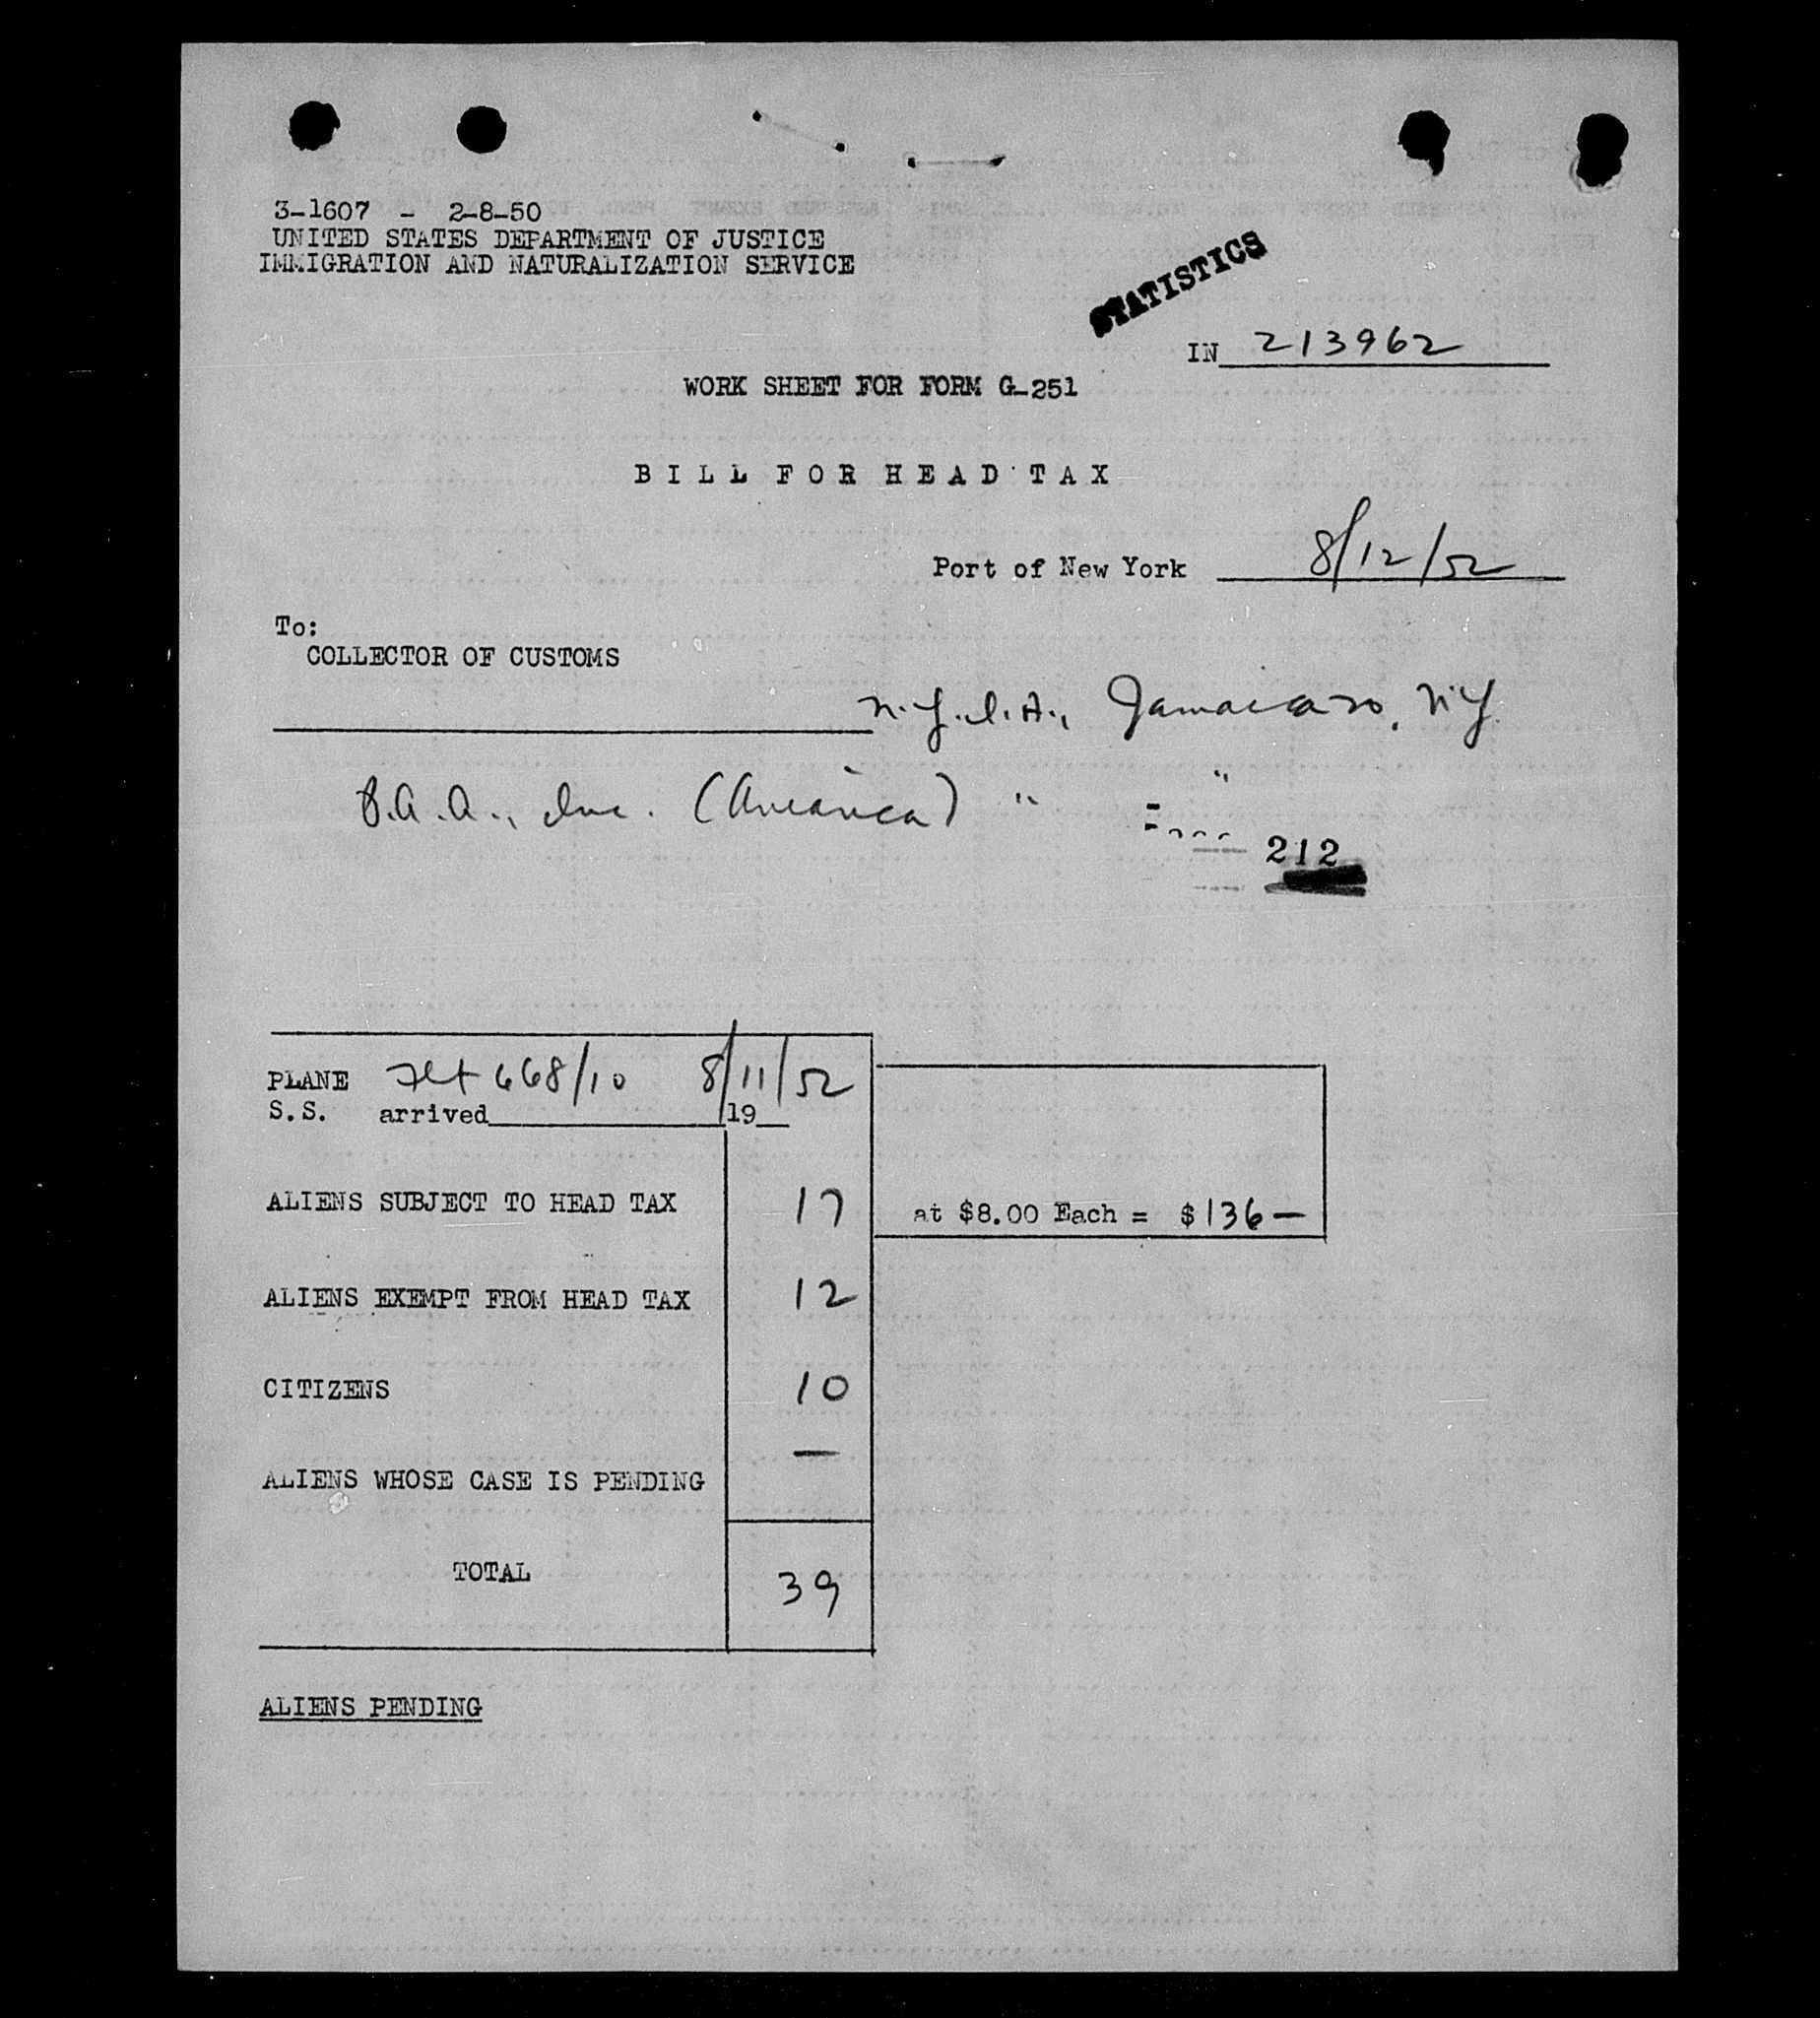 3-1607 - 2-8-50
UNITED STATES DEPARTMENT OF JUSTICE
IMMIGRATION AND NATURALIZATION SERVICE
STATISTICS
IN 213962
WORK SHEET FOR FORM G-251
BILL FOR HEAD TAX
Port of New York 8/12/52
To:
COLLECTOR OF CUSTOMS
N.Y.I.A., Jamaica, N.Y.
P.A.A., Inc. (America) " "
212
PLANE Flt 668/10 8/11/52
S.S. arrived 19
ALIENS SUBJECT TO HEAD TAX 17 at $8.00 Each = $136—
ALIENS EXEMPT FROM HEAD TAX 12
CITIZENS 10
ALIENS WHOSE CASE IS PENDING —
TOTAL 39
ALIENS PENDING